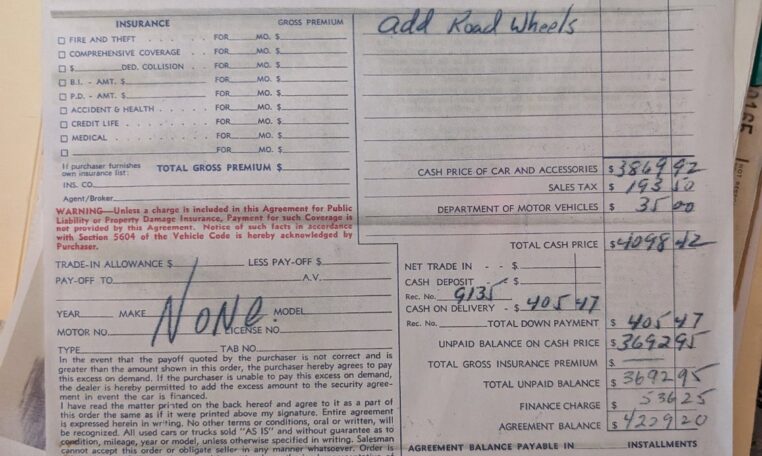 INSURANCE GROSS PREMIUM
☐ FIRE AND THEFT . . . . . . FOR MO. $
☐ COMPREHENSIVE COVERAGE . . FOR MO. $
☐ $ DED. COLLISION . FOR MO. $
☐ B.I. - AMT. $ FOR MO. $
☐ P.D. - AMT. $ FOR MO. $
☐ ACCIDENT & HEALTH . . . . . FOR MO. $
☐ CREDIT LIFE . . . . . . . FOR MO. $
☐ MEDICAL . . . . . . . . FOR MO. $
☐ FOR MO. $
If purchaser furnishes
own insurance list: TOTAL GROSS PREMIUM $
INS. CO.
Agent/Broker
WARNING—Unless a charge is included in this Agreement for Public
Liability or Property Damage Insurance, Payment for such Coverage is
not provided by this Agreement. Notice of such facts in accordance
with Section 5604 of the Vehicle Code is hereby acknowledged by
Purchaser.
TRADE-IN ALLOWANCE $ LESS PAY-OFF $
PAY-OFF TO A.V.
YEAR MAKE MODEL
None
MOTOR NO. LICENSE NO.
TYPE TAB NO.
In the event that the payoff quoted by the purchaser is not correct and is
greater than the amount shown in this order, the purchaser hereby agrees to pay
this excess on demand. If the purchaser is unable to pay this excess on demand,
the dealer is hereby permitted to add the excess amount to the security agree-
ment in event the car is financed.
I have read the matter printed on the back hereof and agree to it as a part of
this order the same as if it were printed above my signature. Entire agreement
is expressed herein in writing. No other terms or conditions, oral or written, will
be recognized. All used cars or trucks sold "AS IS" and without guarantee as to
condition, mileage, year or model, unless otherwise specified in writing. Salesman
cannot accept this order or obligate seller in any manner whatsoever. Order is
add Road Wheels
CASH PRICE OF CAR AND ACCESSORIES $ 3869 92
SALES TAX $ 193 50
DEPARTMENT OF MOTOR VEHICLES $ 35 00
TOTAL CASH PRICE $ 4098 42
NET TRADE IN - - $
CASH DEPOSIT - $
Rec. No. 9135
CASH ON DELIVERY - $ 405 47
Rec. No. TOTAL DOWN PAYMENT $ 405 47
UNPAID BALANCE ON CASH PRICE $ 3692 95
TOTAL GROSS INSURANCE PREMIUM $
TOTAL UNPAID BALANCE $ 3692 95
FINANCE CHARGE $ 536 25
AGREEMENT BALANCE $ 4229 20
AGREEMENT BALANCE PAYABLE IN INSTALLMENTS